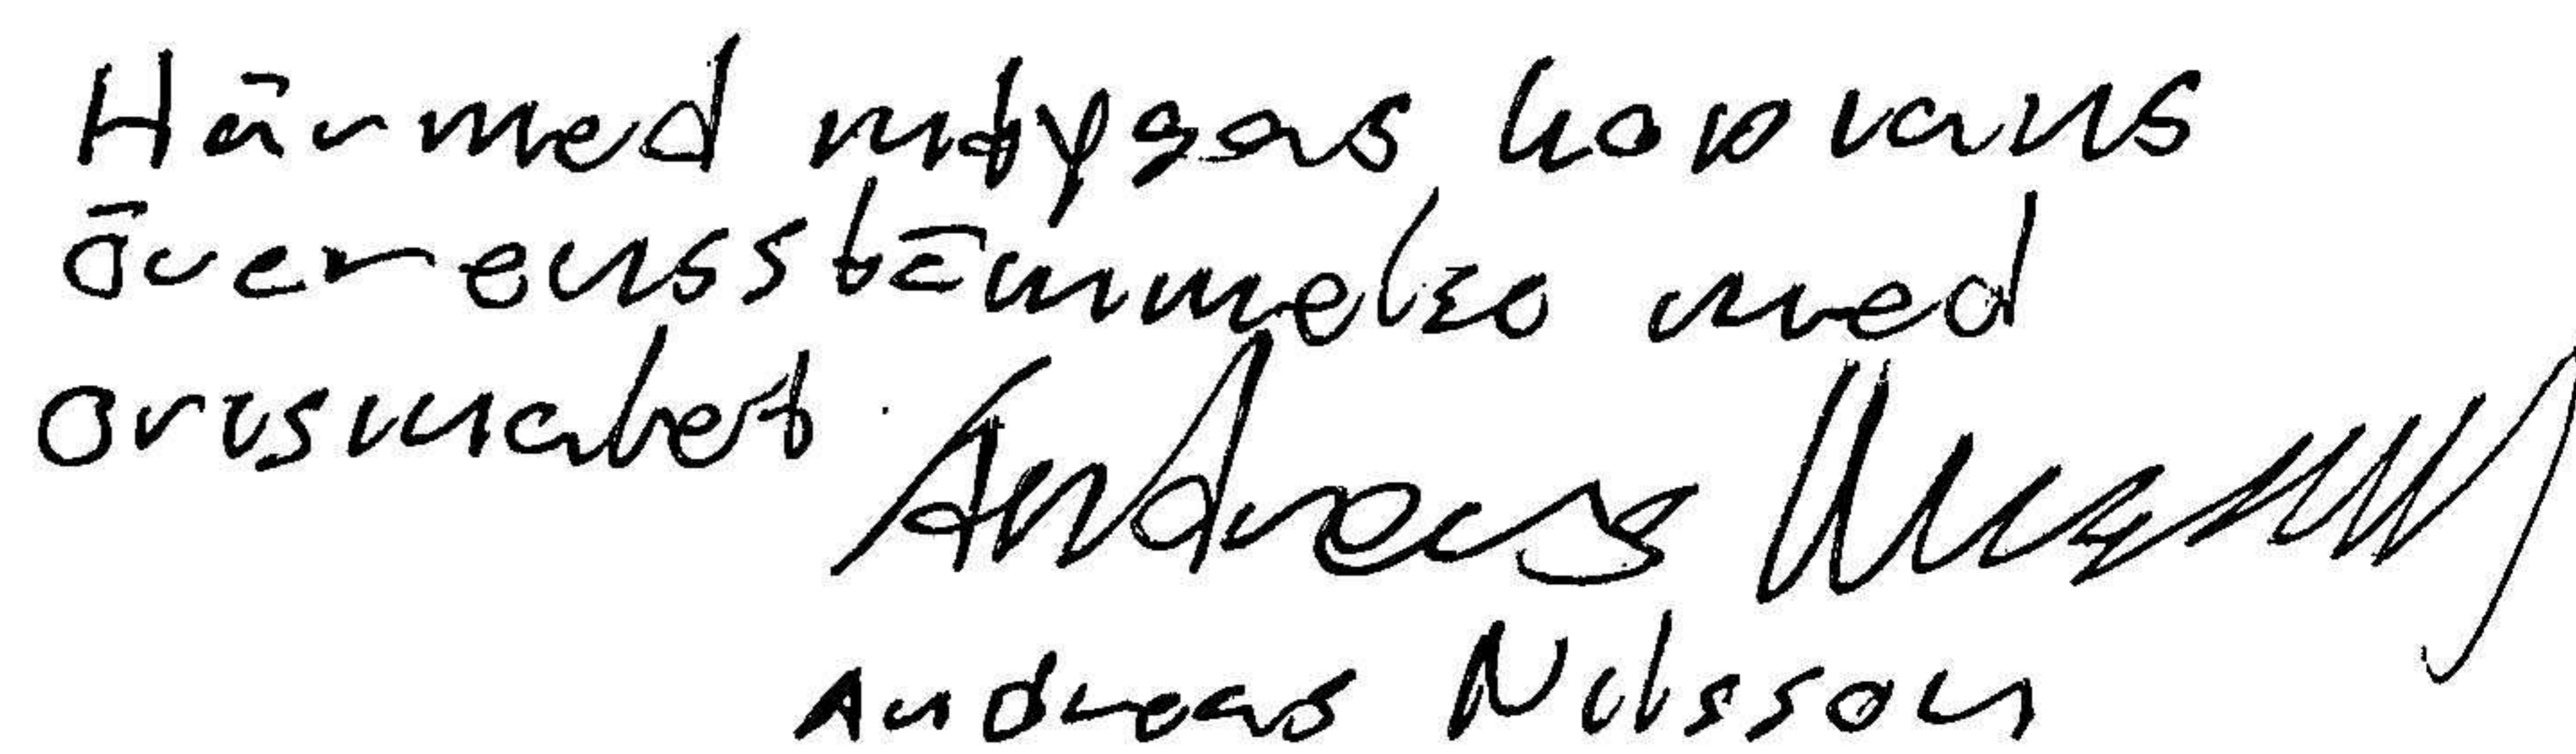 Härmed intygas kopians
överensstämmelse med
originalet. Andreas Nilsson
Andreas Nilsson